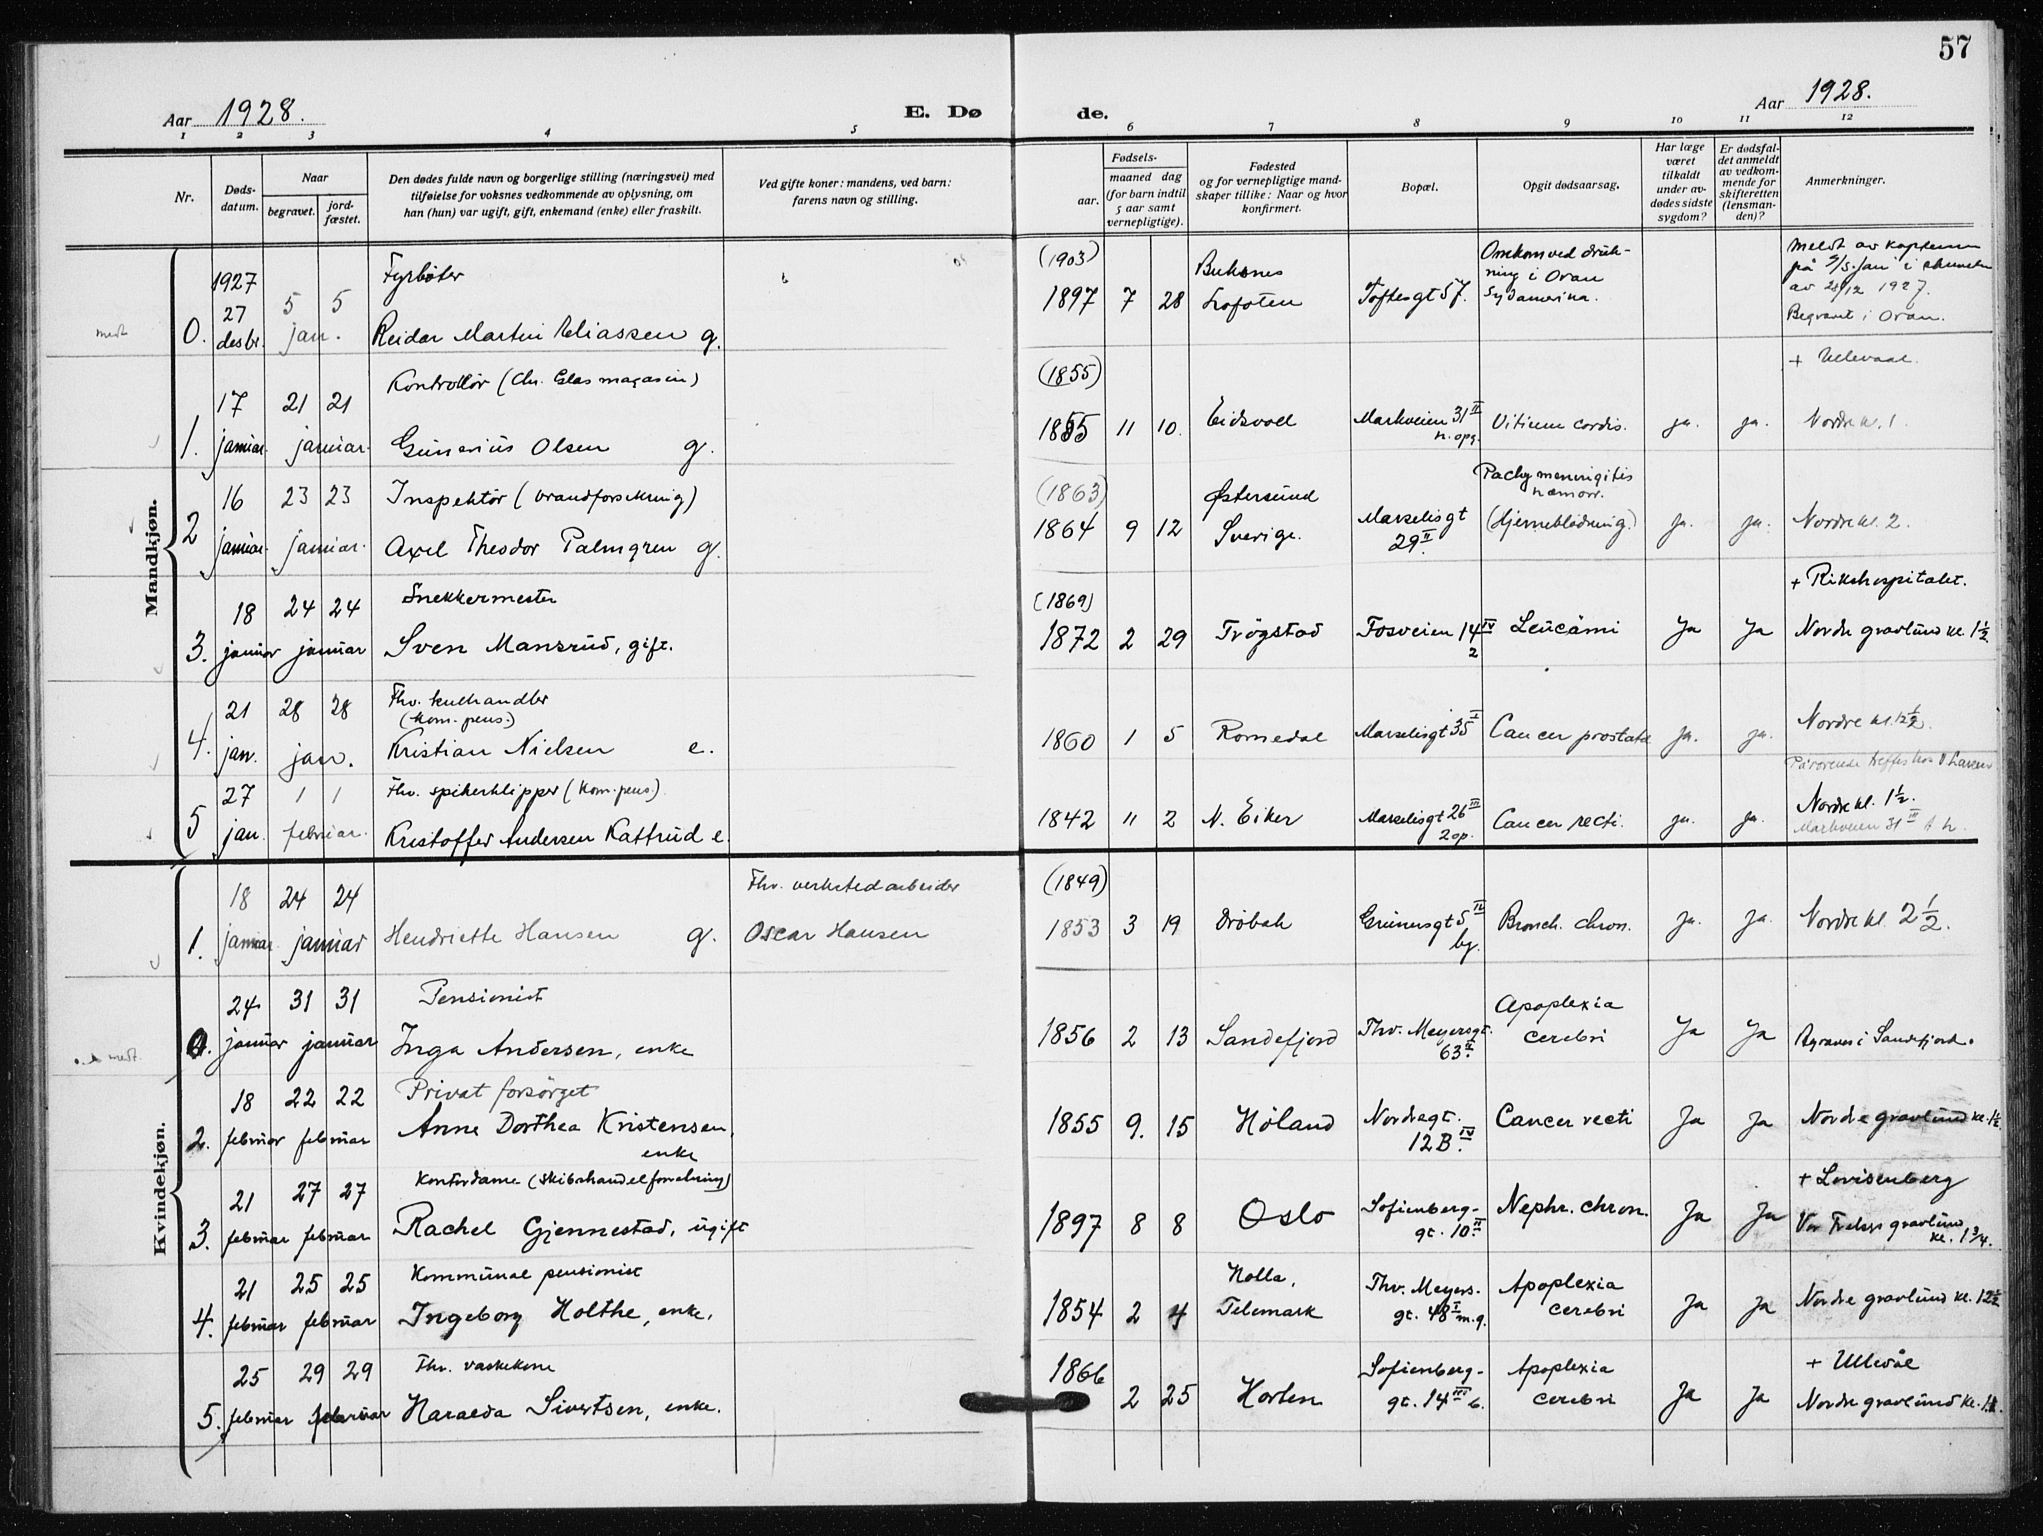 57
Aar 1928.
E. Dø
de.
Aar 1928.
1 2 3 4 5 6 7 8 9 10 11 12
Nr.
Døds-
datum.
Naar
begravet.
jord-
fæstet.
Den dødes fulde navn og borgerlige stilling (næringsvei) med
tilføielse for voksnes vedkommende av oplysning, om
han (hun) var ugift, gift, enkemand (enke) eller fraskilt.
Ved gifte koner: mandens, ved barn:
farens navn og stilling.
Fødsels-
aar.
maaned dag
(for barn indtil
5 aar samt
vernepligtige).
Fødested
og for vernepligtige mand-
skaper tillike: Naar og hvor
konfirmert.
Bopæl.
Opgit dødsaarsag.
Har læge
været
tilkaldt
under av-
dødes sidste
sygdom?
Er dødsfal-
det anmeldt
av vedkom-
mende for
skifteretten
(lensman-
den)?
Anmerkninger.
Mandkjøn.
medt
0.
1927
27
desbr.
5 5
jan.
Fyrbøter
Reidar Martin Eliassen g.
(1903)
1897 7 28
Buksnes
Lofoten
Toftesgt 57.
Omkom ved druk-
ning i Oran
Sydamerika.
Meldt av kapteinen
av 28/12 1927.
Begravet i Oran.
1.
17
januar.
21 21
januar.
Kontrollör (Chr. Glasmagasin)
Gunerius Olsen g.
(1855)
1855 11 10.
Eidsvoll
Markveien 31 II
n. opg.
Vitium cordis.
ja. ja.
+ Ullevaal.
Nordre kl. 1
2
16
januar.
23 23
januar.
Inspektör (brandforsikring)
Axel Theodor Palmgren g.
(1863)
1864 9 12
Østersund
Sverige.
Marselisgt
29 II.
Pachymeningitis
hæmorr.
(Hjerneblödning.)
ja. ja.
Nordre kl. 2.
3.
18
januar
24 24
januar
Snekkermester
Sven Mansrud, gift.
(1869)
1872 2 29
Trögstad
Fosveien 14 IV
2
Leucämi
Ja Ja
+ Rikshospitalet.
Nordre gravlund kl. 1½
4.
21
jan.
28 28
jan.
Fhv. kulhandler
(kom. pens.)
Kristian Nielsen e.
1860 1 5
Romedal
Marselisgt 35 I
Cancer prostata
ja. ja.
Nordre kl. 12½.
5
27
jan.
1 1
februar.
Fhv. spikerklipper (kom. pens.)
Kristoffer Andersen Kattrud e.
1842 11 2
N. Eiker
Marselisgt 26 III
2 op.
Cancer recti.
ja. ja.
Nordre kl. 1½.
Markveien 31 III
Kvindekjøn.
1.
18
januar
24 24
januar
Henriette Hansen g.
Fhv. verkstedarbeider
Oscar Hansen
(1849)
1853 3 19
Dröbak
Grünersgt 5 IV
bg.
Bronch. chron.
ja. ja.
Nordre kl. 2½.
medt.
0.
24
januar
31 31
januar
Pensionist
Inga Andersen, enke
1856 2 13
Sandefjord
Thv. Meyersgt.
63 II.
Apoplexia
cerebri
Ja Ja
Begraves i Sandefjord.
2.
18
februar
22 22
februar
Privat forsörget
Anne Dorthea Kristensen,
enke
1855 9. 15
Höland
Nordregt.
12 B. IV
Cancer recti
Ja Ja
Nordre gravlund kl. 1½
3.
21
februar
27 27
februar
Kontordame (skibshandelforretning)
Rachel Gjennestad, ugift
1897 8 8
Oslo
Sofienberg-
gt. 10 II
Nephr. chron.
Ja Ja
+ Lovisenberg
Vor Frelsers gravlund
kl. 1¾.
4.
21
februar
25 25
februar
Kommunal pensionist
Ingeborg Holthe, enke.
1854 2 4
Holla,
Telemark
Thv. Meyers-
gt. 48 I m.g.
Apoplexia
cerebri
Ja Ja
Nordre gravlund kl. 12½
5.
25
februar
29 29
februar
Fhv. vaskekone
Haralda Sivertsen, enke.
1866
2 25
Horten
Sofienberg-
gt. 14 III b.
Apoplexia
cerebri
Ja Ja
+ Ullevål
Nordre gravlund kl.